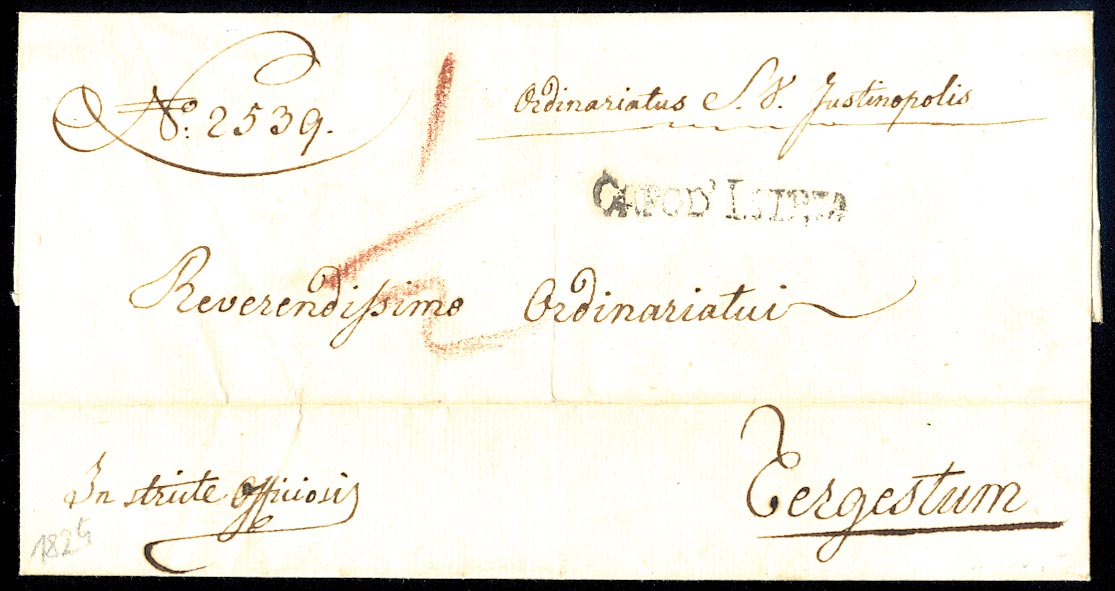 No: 2539.
Ordinariatus S. V. Justinopolis
CAPOD' ISTRIA
Reverendissimo Ordinariatui
In stricte Officiosis
Tergestum
1825